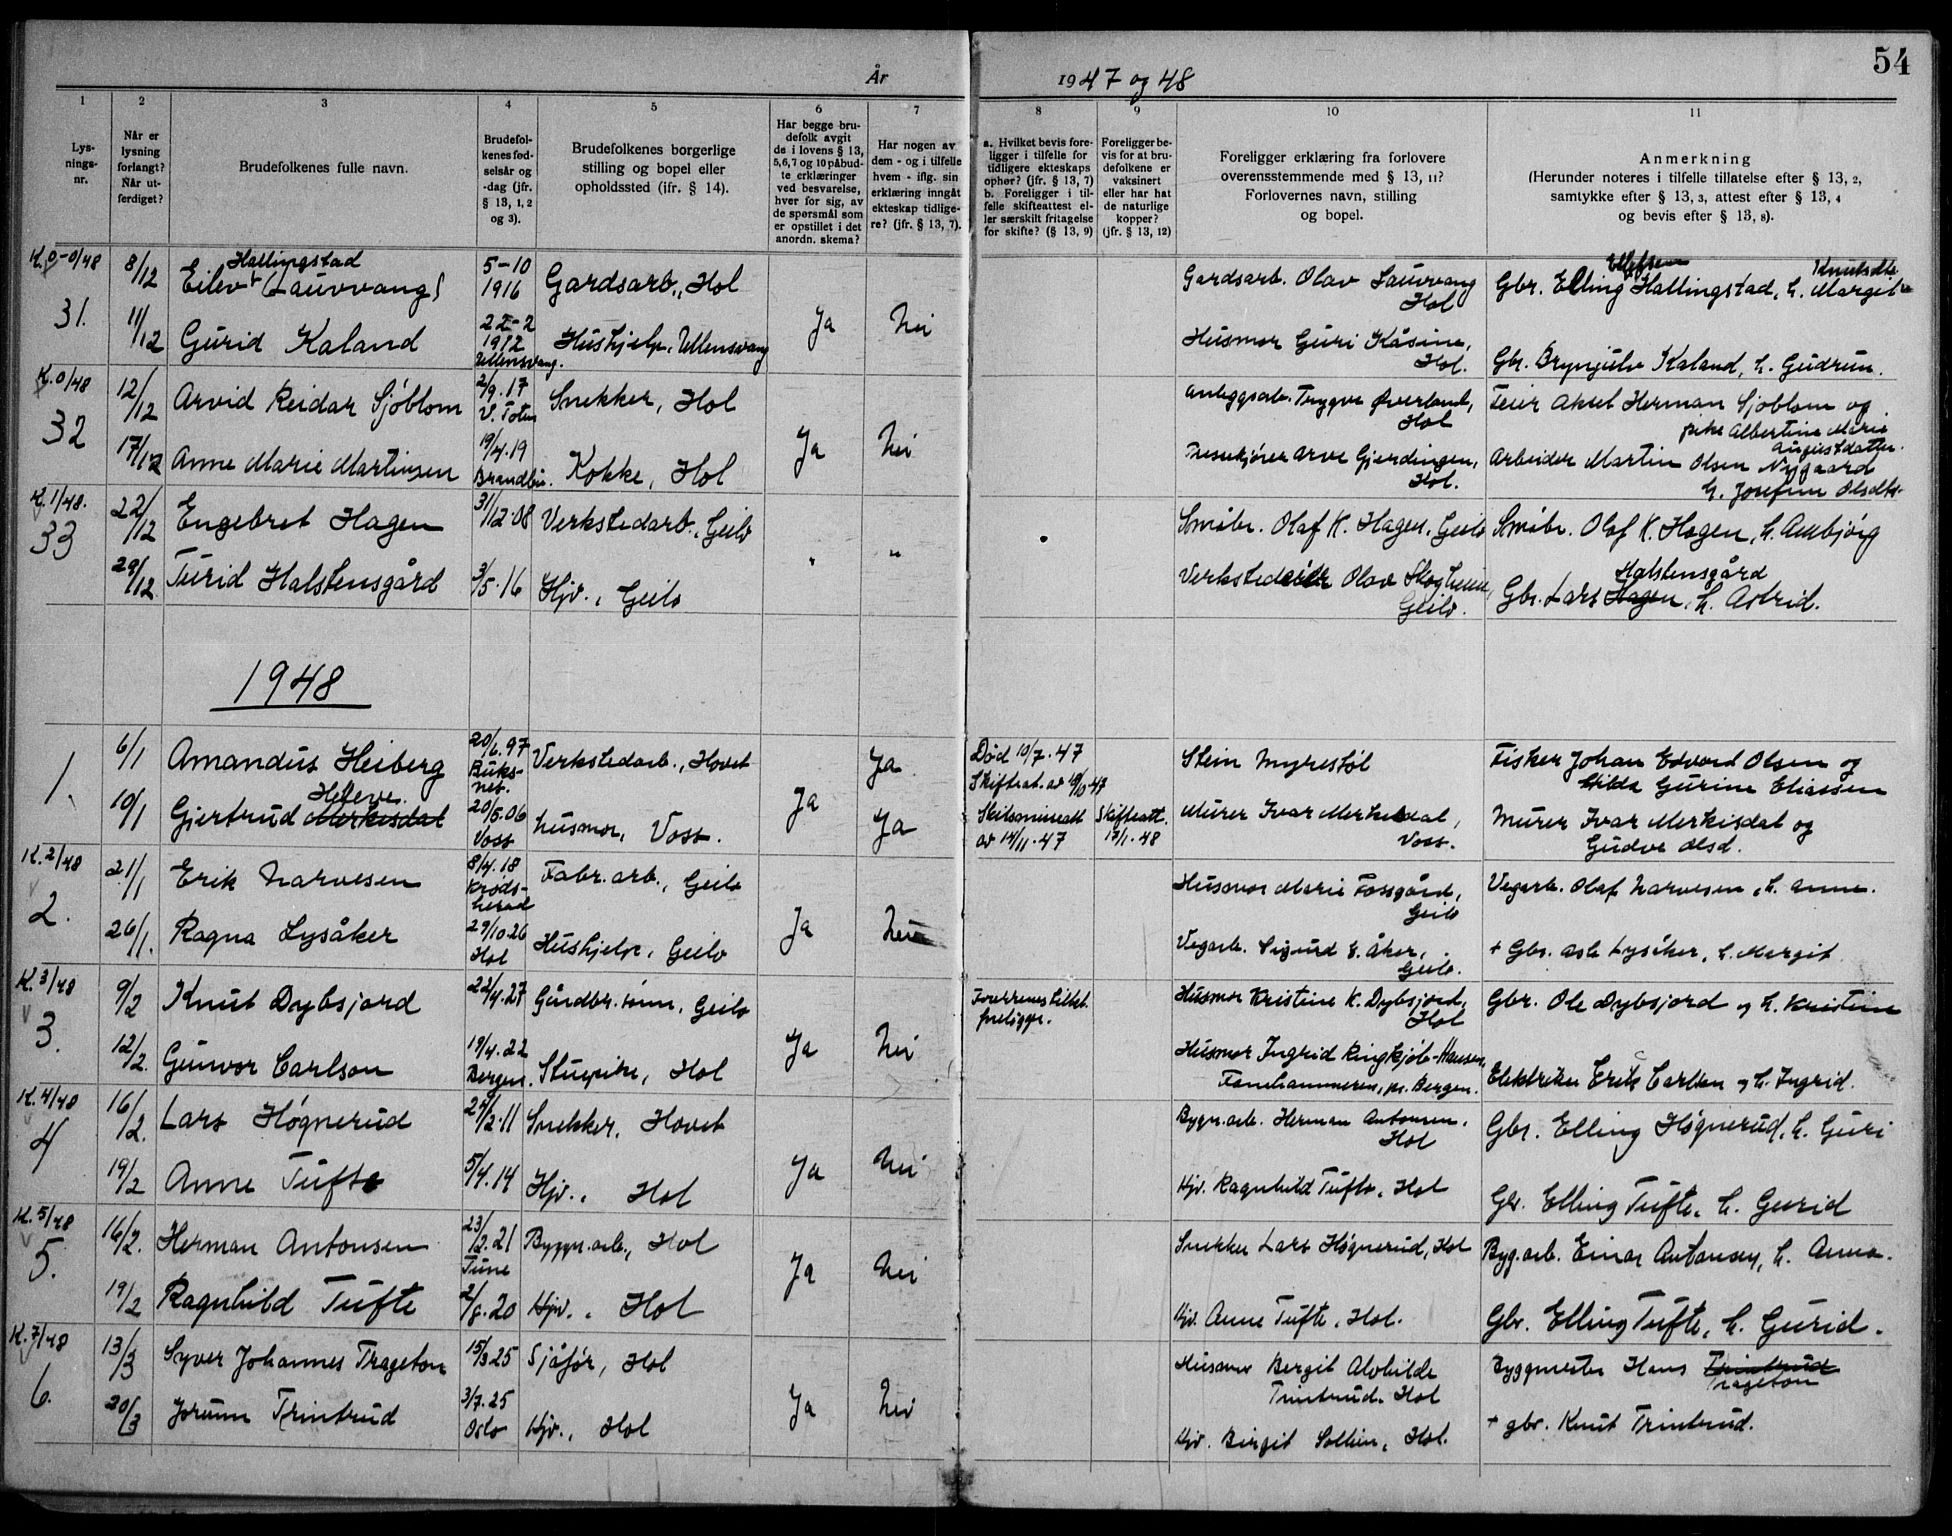 54
År 1947 og 48
1
2
3
4
5
6
7
8
9
10
11
Lysnings-nr.
Når er lysning forlangt? Når utferdiget?
Brudefolkenes fulle navn.
Brudefolkenes fødselsår og -dag (jfr. § 13, 1, 2 og 3).
Brudefolkenes borgerlige stilling og bopel eller opholdssted (ifr. § 14).
Har begge brudefolk avgit de i lovens § 13, 5,6,7 og 10 påbudte erklæringer ved besvarelse, hver for sig, av de spørsmål som er opstillet i det anordn. skema?
Har nogen av dem - og i tilfelle hvem - iflg. sin erklæring inngåt ekteskap tidligere? (jfr. § 13, 7).
a. Hvilket bevis foreligger i tilfelle for tidligere ekteskaps ophør? (jfr. § 13, 7) b. Foreligger i tilfelle skifteattest eller særskilt fritagelse for skifte? (§ 13, 9)
Foreligger bevis for at brudefolkene er vaksinert eller har hat de naturlige kopper? (jfr. § 13, 12)
Foreligger erklæring fra forlovere overensstemmende med § 13, 11? Forlovernes navn, stilling og bopel.
Anmerkning (Herunder noteres i tilfelle tillatelse efter § 13, 2, samtykke efter § 13, 3, attest efter § 13, 4 og bevis efter § 13, 8).
K. 0-0/48
31.
8/12 Eilev Hallingstad (Lauvvang) 5-10 1916 Gardsarb., Hol
Gardsarb. Olav Lauvvang Hol
Gbr. Elling Ellefsen Hallingstad, h. Margit Knutsdtr
11/12 Gurid Kaland 22-2 1912 Ullensvang. Hushjelp, Ullensvang Ja Nei
Husmor Guri Kåsine, Hol.
Gbr. Brynjulv Kaland, h. Gudrun.
K. 0/48
32
12/12 Arvid Reidar Sjøblom 2/9.17 V. Toten Snekker, Hol
Anleggsarb. Trygve Øverland, Hol
Feier Aksel Herman Sjøblom og pike Albertine Marie Augustdatter.
17/12 Anne Marie Martinsen 19/4.19 Brandbu. Kokke, Hol Ja Nei
Arve Gjerdingen, Hol.
Arbeider Martin Olsen Nygaard h. Josefine Olsdtr.
K. 1/48.
33
22/12 Engebret Hagen 31/12.08 Verkstedarb., Geilo
Småbr. Olaf K. Hagen, Geilo
Småbr. Olaf K. Hagen, h. Ambjørg
29/12 Turid Halstensgård 3/5.16 Hjv., Geilo " "
Olav Skogheim, Geilo.
Gbr. Lars Hagen Halstensgård, h. Astrid.
1948
1.
6/1 Amandus Heiberg 20/6.97 Buksnes. Verkstedarb., Hovet Ja
Død 10/7.47
Stein Myrestøl
Fisker Johan Edvard Olsen og Hilda Gurine Eliassen
10/1 Gjertrud Merkisdal Heleve. 20/5.06 Voss husmor, Voss. Ja Ja
av 14/11.47
Skifteatt. 12/1.48
Murer Ivar Merkisdal, Voss.
Murer Ivar Merkisdal og Gudve Olsd.
K. 2/48
2.
21/1 Erik Narvesen 8/4.18 Krødsherad Fabr. arb., Geilo
Husmor Marie Fossgård, Geilo
Vegarb. Olaf Narvesen, h. Anne.
26/1. Ragna Lysåker 29/10.26 Hol Hushjelp, Geilo Ja Nei
Vegarb. Sigurd E. Åker, Geilo.
+ Gbr. Asle Lysåker, h. Margit
K. 3/48
3.
9/2 Knut Dybsjord 22/4.27 Gårdbr. sønn, Geilo
Foreldrenes tillat. foreligger.
Husmor Kristine K. Dybsjord, Hol
Gbr. Ole Dybsjord og h. Kristine
12/2. Gunvor Carlson 19/4.22 Bergen. Stuepike, Hol Ja Nei
Husmor Ingrid Ringkjøb-Hansen, Fanehammeren, pr. Bergen.
Elektriker Erik Carlson og h. Ingrid.
K. 4/48
4
16/2. Lars Høgnerud 24/2.11 Snekker, Hovet
Bygn.arb. Herman Antonsen, Hol
Gbr. Elling Høgnerud, h. Guri
19/2 Anne Tufte 5/4.14 Hjv., Hol Ja Nei
Hjv. Ragnhild Tufte, Hol
Gbr. Elling Tufte, h. Gurid
K. 5/48
5.
16/2. Herman Antonsen 23/12.21 Tune Byggn.arb., Hol
Snekker Lars Høgnerud, Hol
Byg.arb. Einar Antonsen, h. Anna.
19/2 Ragnhild Tufte 2/8.20 Hjv., Hol Ja Nei
Hjv. Anne Tufte, Hol.
Gbr. Elling Tufte, h. Gurid.
K. 7/48
6.
13/3 Syver Johannes Trageton 15/3 25 Sjåfør, Hol
Husmor Bergit Alvhilde Trintrud. Hol
Byggmester Hans Trintrud Trageton
20/3 Jorunn Trintrud 3/7.25 Oslo Hjv., Hol Ja Nei
Hjv. Birgit Solheim, Hol.
+ gbr. Knut Trintrud.